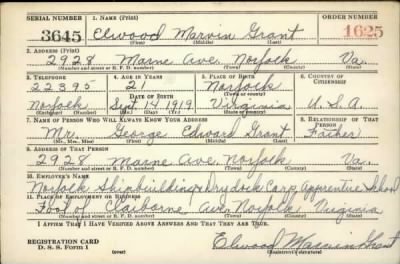 SERIAL NUMBER 1. NAME (Print) ORDER NUMBER
3645 Elwood Marvin Grant 1625
(First) (Middle) (Last)
2. ADDRESS (Print)
2928 Marne Ave. Norfolk Va.
(Number and street or R. F. D. number) (Town) (County) (State)
3. TELEPHONE 4. AGE IN YEARS 5. PLACE OF BIRTH 6. COUNTRY OF CITIZENSHIP
22395 21 Norfolk
DATE OF BIRTH
Norfolk Sept. 14 1919 Virginia U.S.A.
(Exchange) (Number) (Mo.) (Day) (Yr.) (State or country)
7. NAME OF PERSON WHO WILL ALWAYS KNOW YOUR ADDRESS 8. RELATIONSHIP OF THAT PERSON
Mr. George Edward Grant Father
(Mr., Mrs., Miss) (First) (Middle) (Last)
9. ADDRESS OF THAT PERSON
2928 Marne Ave. Norfolk Va.
(Number and street or R. F. D. number) (Town) (County) (State)
10. EMPLOYER'S NAME
Norfolk Shipbuilding & Dry dock Corp. Apprentice School
11. PLACE OF EMPLOYMENT OR BUSINESS
Foot of Claiborne Ave. Norfolk Virginia
(Number and street or R. F. D. number) (Town) (County) (State)
I AFFIRM THAT I HAVE VERIFIED ABOVE ANSWERS AND THAT THEY ARE TRUE.
REGISTRATION CARD
D. S. S. Form 1 (over) Elwood Marvin Grant
(Registrant's signature)